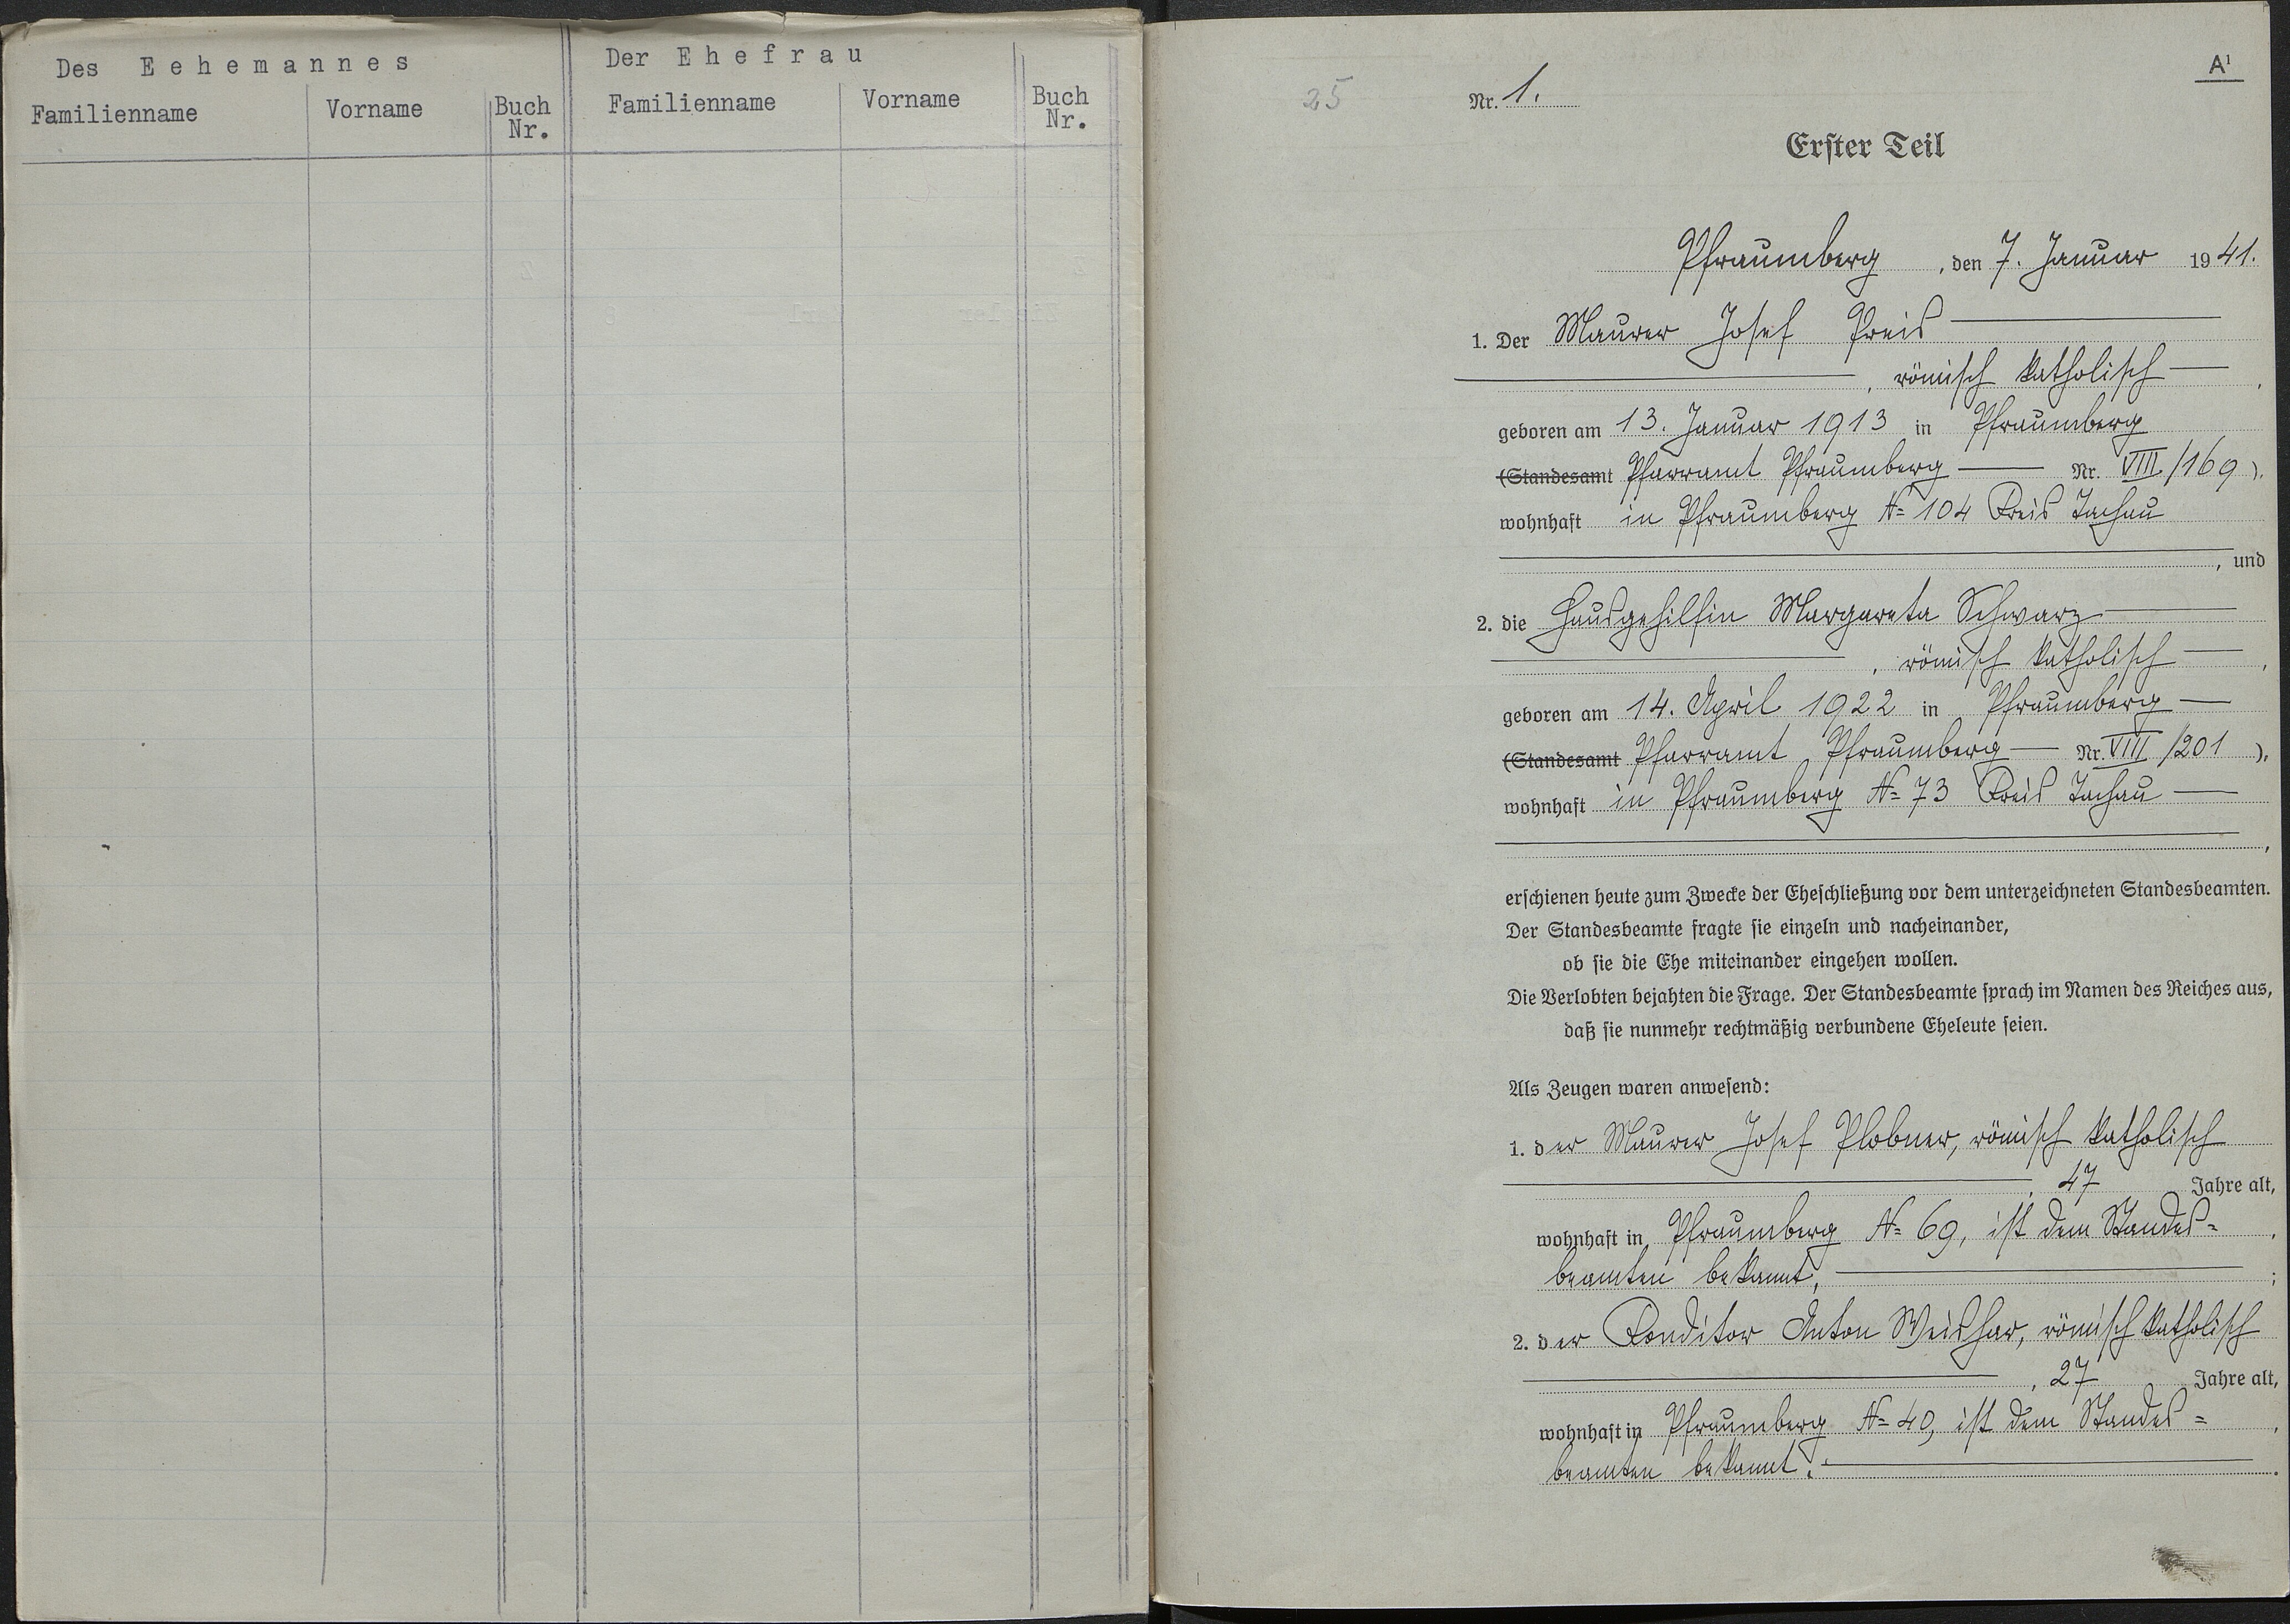 Des Eehemannes
Der Ehefrau
Familienname
Vorname
Buch
Nr.
Familienname
Vorname
Buch
Nr.
A¹
25
Nr. 1.
Erster Teil
Pfraumberg, den 7. Januar 1941.
1. Der Maurer Josef Preis
, römisch katholisch,
geboren am 13. Januar 1913 in Pfraumberg
(Standesamt Pfarramt Pfraumberg Nr. VIII/169),
wohnhaft in Pfraumberg N= 104 Kreis Tachau
, und
2. die Hausgehilfin Margareta Schwarz
, römisch katholisch,
geboren am 14. April 1922 in Pfraumberg
(Standesamt Pfarramt Pfraumberg Nr. VIII/201),
wohnhaft in Pfraumberg N= 73 Kreis Tachau
,
erschienen heute zum Zwecke der Eheschließung vor dem unterzeichneten Standesbeamten.
Der Standesbeamte fragte sie einzeln und nacheinander,
ob sie die Ehe miteinander eingehen wollen.
Die Verlobten bejahten die Frage. Der Standesbeamte sprach im Namen des Reiches aus,
daß sie nunmehr rechtmäßig verbundene Eheleute seien.
Als Zeugen waren anwesend:
1. der Maurer Josef Plobner, römisch katholisch
, 47 Jahre alt,
wohnhaft in Pfraumberg N= 69, ist dem Standes=
beamten bekannt, ;
2. der Konditor Anton Weishar, römisch katholisch
, 27 Jahre alt,
wohnhaft in Pfraumberg N= 40, ist dem Standes=
beamten bekannt.